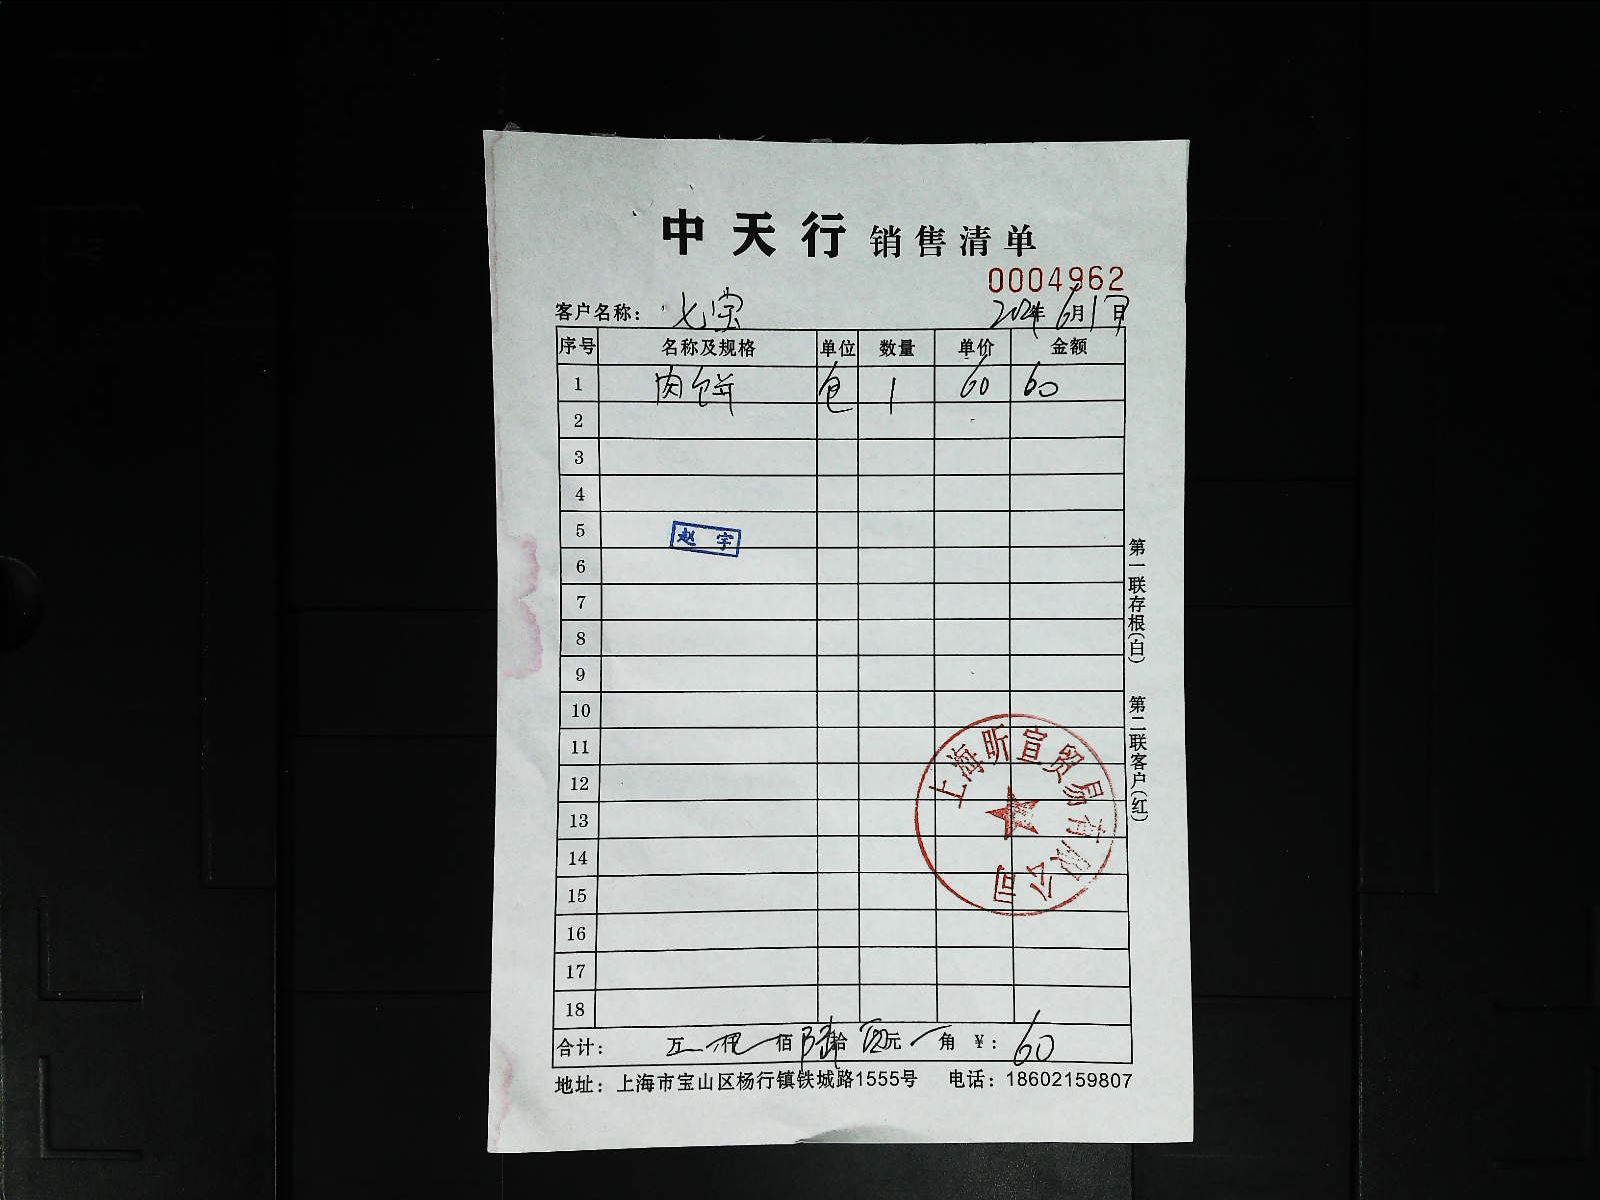 中天行 销售清单
0004962
客户名称： 七宝 年6月1日
序号 名称及规格 单位 数量 单价 金额
1 肉饼 包 1 60 60
2
3
4
5
赵宇
6
7
8
9
10
11
12
13
14
15
16
17
18
上海昕宣贸易有限公司
合计： 万 仟 佰 陆拾 元 角 ¥： 60
地址：上海市宝山区杨行镇铁城路1555号 电话：18602159807
第一联存根(白) 第二联客户(红)